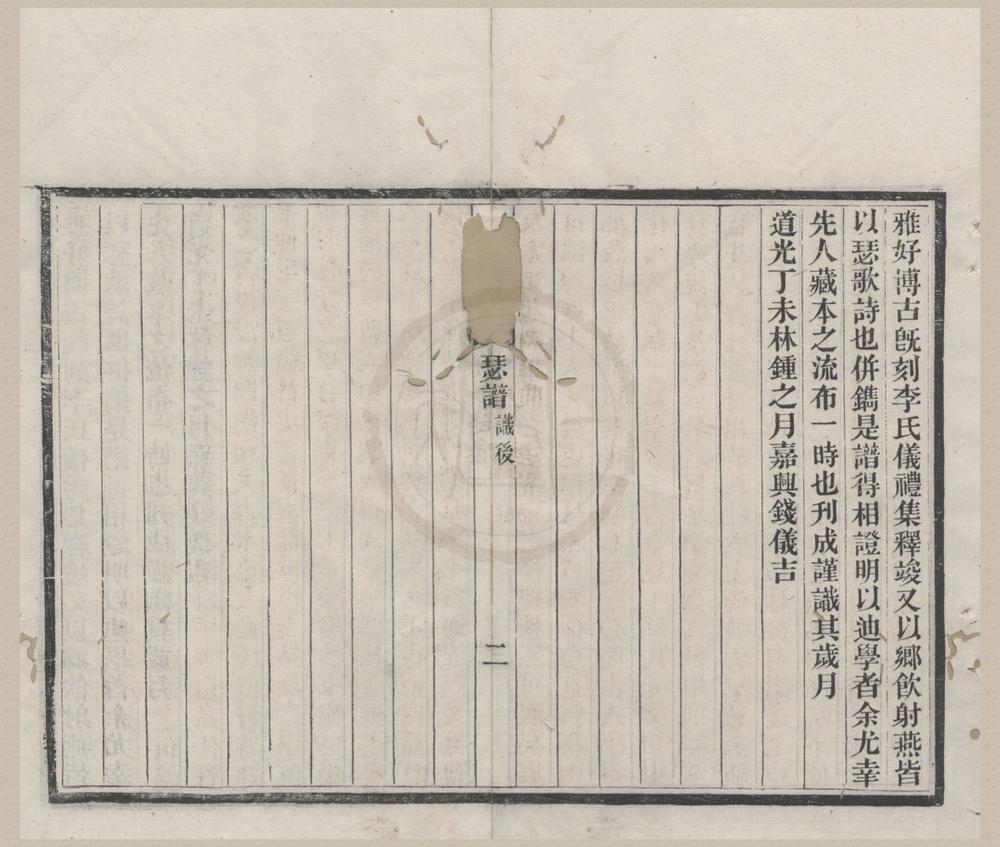 雅好博古旣刻李氏儀禮集釋竣又以鄉飮射燕皆
以瑟歌詩也併鐫是譜得相證明以迪學者余尤幸
先人藏本之流布一時也刊成謹識其歲月
道光丁未林鍾之月嘉興錢儀吉
瑟譜
識後
二